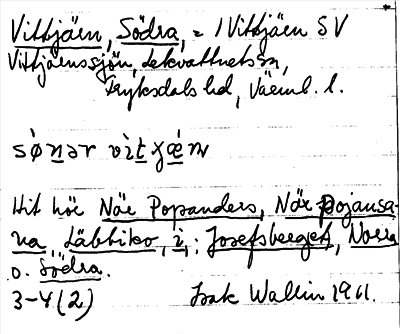 Vittjäen, Södra, = 1 Vittjäen SV
Vittjäenssjön, Lekvattnets sn,
Fryksdals hd, Värml. l.
sǿnər vìtjǽn
Hit hör När Popanders, När-pojansa-
na, Läbbiko, i,: Josefsberget, Norra
o. Södra.
3-4 (2) Isak Wallin 1911.